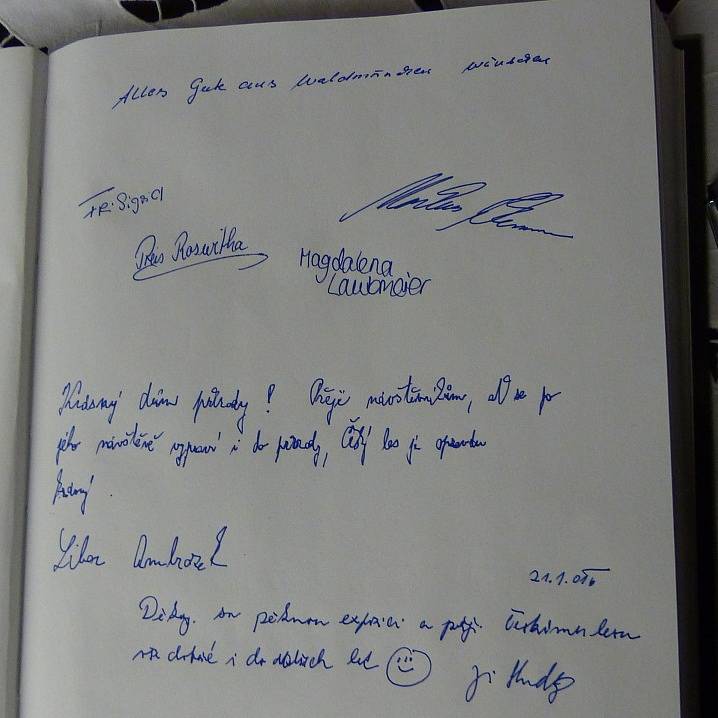 Alles Gute aus Waldmünchen wünschen
Pres Roswitha
Magdalena
Laubmeier
Krásný dům přírody! Přeji návštěvníkům, ať se po
jeho návštěvě vypraví i do přírody, Český les je opravdu
krásný.
Libor Ambrozek
21.1.
Děkuji za pěknou expozici a přeji Českému lesu
vše dobré i do dalších let